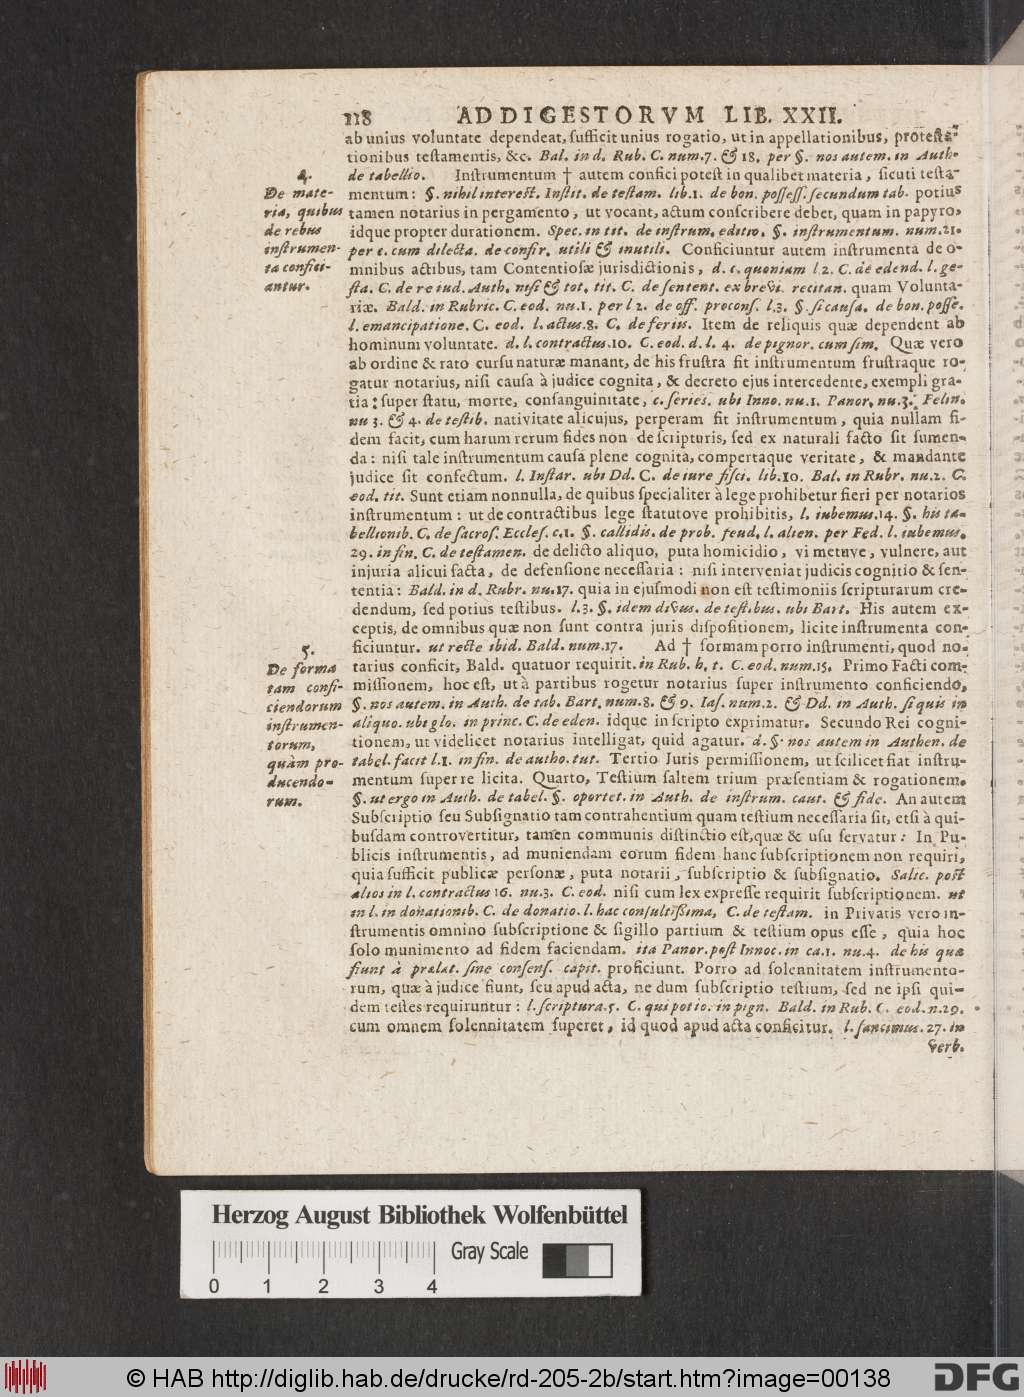 118 AD DIGESTORVM LIB. XXII.
ab unius voluntate dependeat, sufficit unius rogatio, ut in appellationibus, protesta-
tionibus testamentis, &c. Bal. in d. Rub. C. num.7. & 18. per §. nos autem. in Auth.
de tabellio. Instrumentum † autem confici potest in qualibet materia, sicuti testa-
mentum: §. nihil interest. Instit. de testam. lib.1. de bon. possess. secundum tab. potius
tamen notarius in pergamento, ut vocant, actum conscribere debet, quam in papyro,
idque propter durationem. Spec. in tit. de instrum. editio. §. instrumentum. num.21.
per c. cum dilecta. de confir. utili & inutili. Conficiuntur autem instrumenta de o-
mnibus actibus, tam Contentiosæ jurisdictionis, d. c. quoniam l 2. C. de edend. l. ge-
sta. C. de re iud. Auth. nisi & tot. tit. C. de sentent. ex brevi. recitan. quam Volunta-
riæ. Bald. in Rubric. C. eod. nu.1. per l 2. de off. procons. l.3. §. si causa. de bon. posse.
l. emancipatione. C. eod. l. actus.8. C. de feriis. Item de reliquis quæ dependent ab
hominum voluntate. d. l. contractus.10. C. eod. d. l. 4. de pignor. cum sim. Quæ vero
ab ordine & rato cursu naturæ manant, de his frustra fit instrumentum frustraque ro-
gatur notarius, nisi causa à judice cognita, & decreto ejus intercedente, exempli gra-
tia: super statu, morte, consanguinitate, c. series. ubi Inno. nu.1. Panor. nu.3. Felin.
nu 3. & 4. de testib. nativitate alicujus, perperam fit instrumentum, quia nullam fi-
dem facit, cum harum rerum fides non de scripturis, sed ex naturali facto sit sumen-
da: nisi tale instrumentum causa plene cognita, compertaque veritate, & mandante
judice sit confectum. l. Instar. ubi Dd. C. de iure fisci. lib.10. Bal. in Rubr. nu.2. C.
eod. tit. Sunt etiam nonnulla, de quibus specialiter à lege prohibetur fieri per notarios
instrumentum: ut de contractibus lege statutove prohibitis, l. iubemus.14. §. his ta-
bellionib. C. de sacros. Eccles. c.1. §. callidis. de prob. feud. l. alien. per Fed. l. iubemus.
29. in fin. C. de testamen. de delicto aliquo, puta homicidio, vi metuve, vulnere, aut
injuria alicui facta, de defensione necessaria: nisi interveniat judicis cognitio & sen-
tentia: Bald. in d. Rubr. nu.17. quia in ejusmodi non est testimoniis scripturarum cre-
dendum, sed potius testibus. l.3. §. idem divus. de testibus. ubi Bart. His autem ex-
ceptis, de omnibus quæ non sunt contra juris dispositionem, licite instrumenta con-
ficiuntur. ut recte ibid. Bald. num.17. Ad † formam porro instrumenti, quod no-
tarius conficit, Bald. quatuor requirit. in Rub. h. t. C. eod. num.15. Primo Facti com-
missionem, hoc est, ut à partibus rogetur notarius super instrumento conficiendo,
§. nos autem. in Auth. de tab. Bart. num.8. & 9. Ias. num.2. & Dd. in Auth. si quis in
aliquo. ubi glo. in princ. C. de eden. idque in scripto exprimatur. Secundo Rei cogni-
tionem, ut videlicet notarius intelligat, quid agatur. d. §. nos autem in Authen. de
tabel. facit l.1. in fin. de autho. tut. Tertio Juris permissionem, ut scilicet fiat instru-
mentum super re licita. Quarto, Testium saltem trium præsentiam & rogationem.
§. ut ergo in Auth. de tabel. §. oportet. in Auth. de instrum. caut. & fide. An autem
Subscriptio seu Subsignatio tam contrahentium quam testium necessaria sit, etsi à qui-
busdam controvertitur, tamen communis distinctio est, quæ & usu servatur: In Pu-
blicis instrumentis, ad muniendam eorum fidem hanc subscriptionem non requiri,
quia sufficit publicæ personæ, puta notarii, subscriptio & subsignatio. Salic. post
alios in l. contractus 16. nu.3. C. eod. nisi cum lex expresse requirit subscriptionem. ut
in l. in donationib. C. de donatio. l. hac consultissima, C. de testam. in Privatis vero in-
strumentis omnino subscriptione & sigillo partium & testium opus esse, quia hoc
solo munimento ad fidem faciendam. ita Panor. post Innoc. in ca.1. nu.4. de his quæ
fiunt à prælat. sine consens. capit. proficiunt. Porro ad solennitatem instrumento-
rum, quæ à judice fiunt, seu apud acta, ne dum subscriptio testium, sed ne ipsi qui-
dem testes requiruntur: l. scriptura.5. C. qui potio. in pign. Bald. in Rub. C. eod. n.29.
cum omnem solennitatem superet, id quod apud acta conficitur. l. sancimus. 27. in
verb.
4.
De mate-
ria, quibus
de rebus
instrumen-
ta confici-
antur.
5.
De forma
tam confi-
ciendorum
instrumen-
torum,
quàm pro-
ducendo-
rum.
Herzog August Bibliothek Wolfenbüttel
Gray Scale
0 1 2 3 4
© HAB http://diglib.hab.de/drucke/rd-205-2b/start.htm?image=00138
DFG